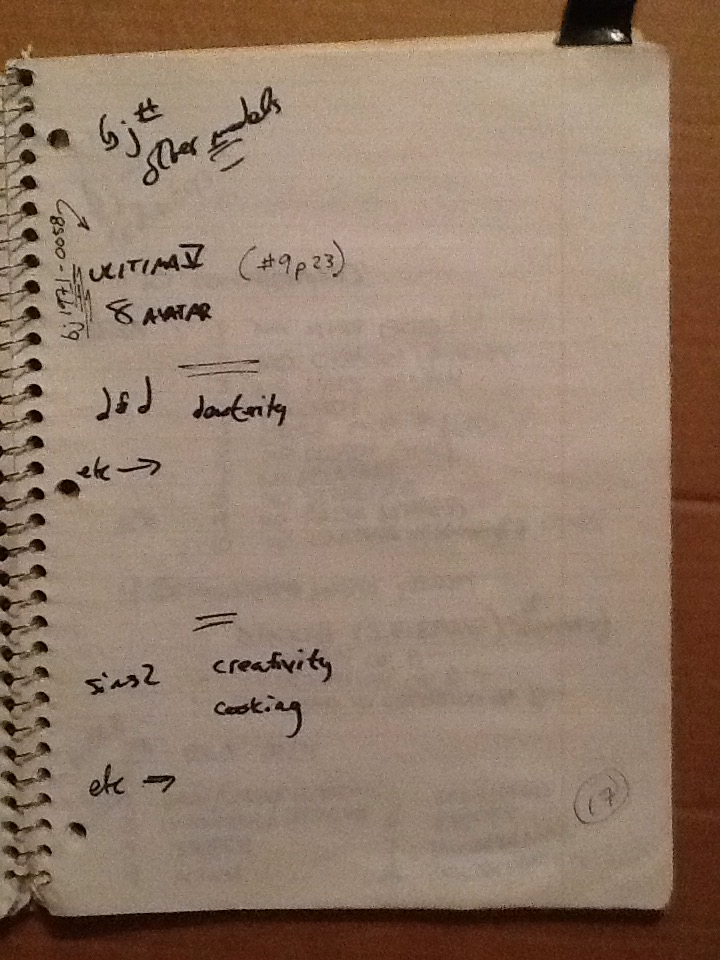 bj #
other models
bj 1971-0058
ULTIMA V (#9 p 23)
8 AVATAR
d&d dexterity
etc →
sims2 creativity
cooking
etc →
17